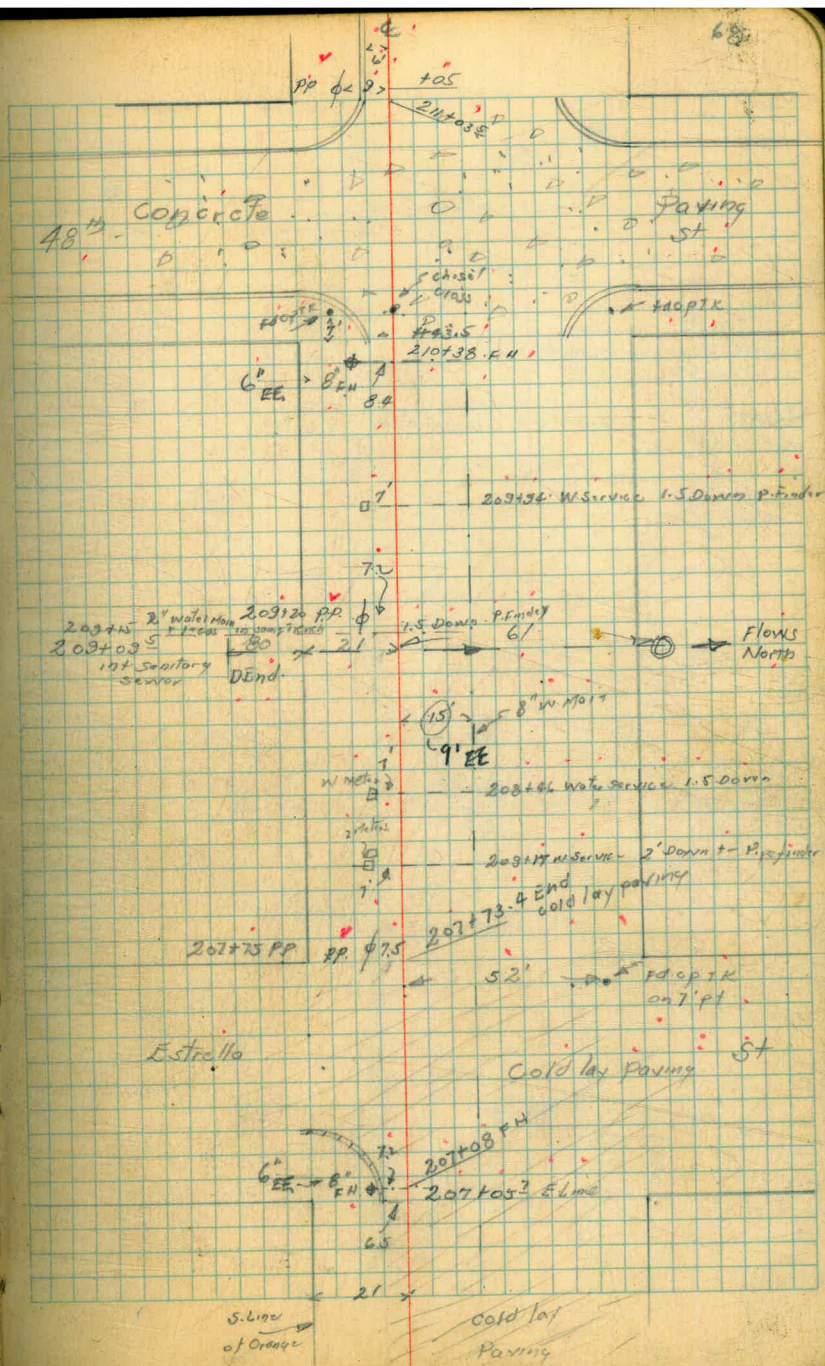 ℄
68
6'
PP ϕ < 9 > +05
211+03
Concrete Paving
48th St
chisel
cross
Fd cp TK Fd cp TK
7'
+43.5
210+38 FH
6" EE > 8" FH
8.4
7' 209+94 W. Service 1.5 Down P. Finder
7.2
209+15 2" Water Main 209+20 P.P. ϕ
in same trench
1.5 Down P. Finder
209+09 5 80 21 61 Flows
North
int sanitary
sewer
D End.
15' 8" W. Main
9' EE
7'
W Meter 208+46 Water Service 1.5 Down
2 Meters
208+17 W Service - 2' Down +- P.
7'
207+73.4 End
cold lay paving
207+75 PP PP. ϕ 7.5
52' Fd cp TK
on 7' pt
Estrella St
Cold lay paving
7.2 207+08 FH
6" EE → 8" FH 207+05 2 E Line
6.5
21
S. Line
of Orange
cold lay
Paving